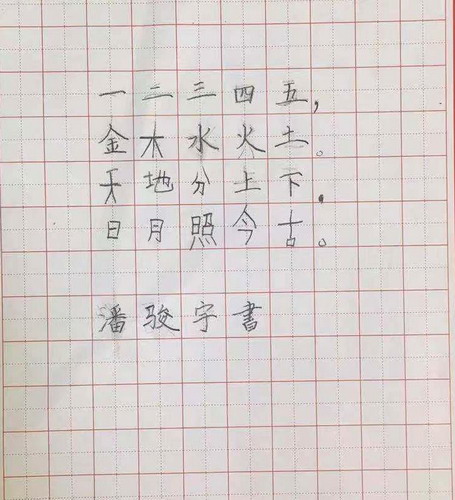 一二三四五，
金木水火土。
天地分上下．
日月照今古。
潘骏宇書